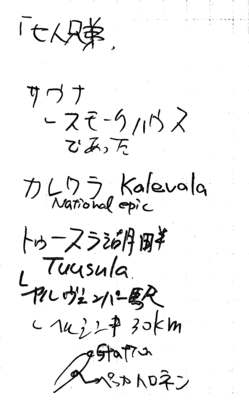 「七人兄弟」
サウナ
スモークハウス
であった
カレワラ Kalevala
National epic
トゥースラ湖畔
Tuusula
ヤルヴェンパー駅
ヘルシンキ 30km
station
ペッカハロネン